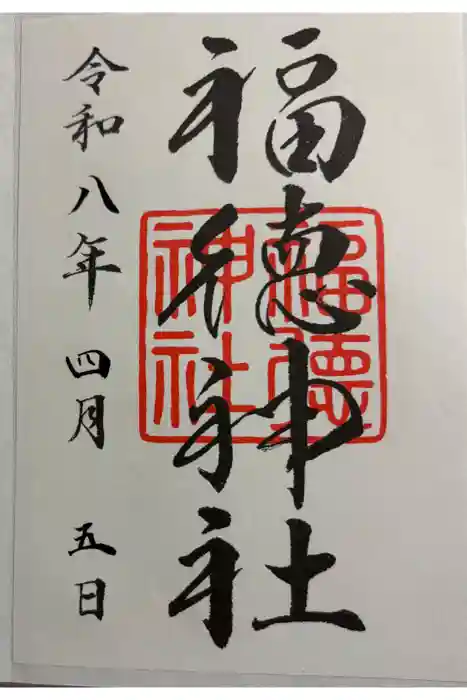 福徳神社
福德
神社
令和八年四月五日